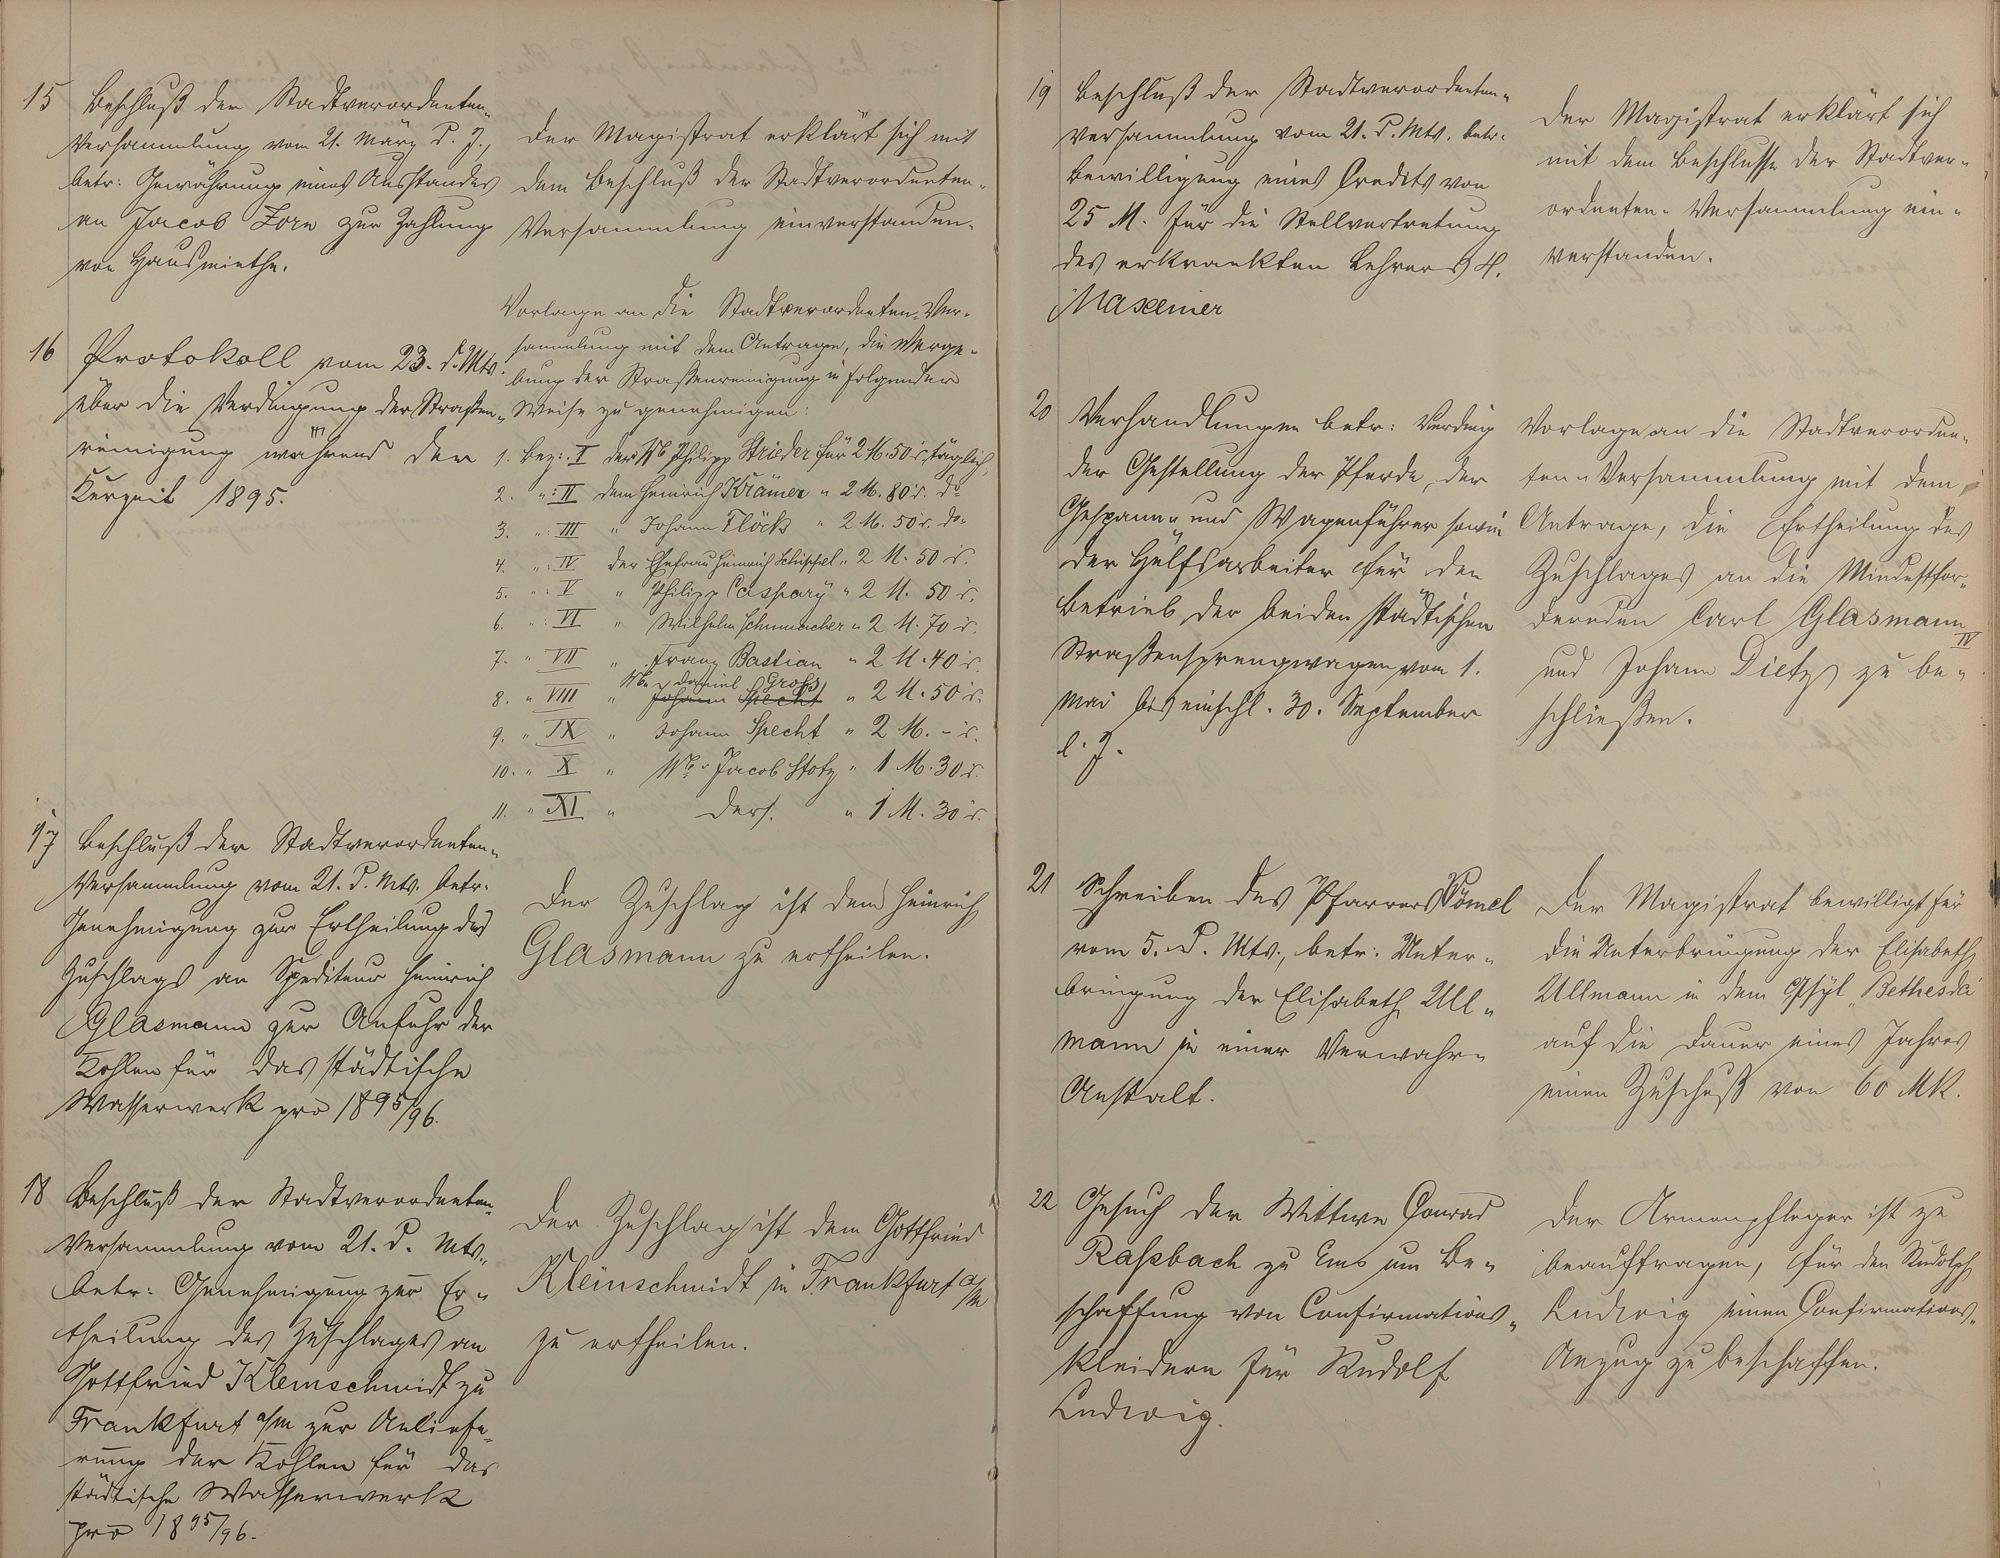 15 Beschluß der Stadtverordneten-
Versammlung vom 21. März d. J.,
betr: Gewährung eines Ausstandes
an Jacob Zorn zur Zahlung
von Hausmiethe.
Der Magistrat erklärt sich mit
dem Beschluß der Stadtverordneten-
Versammlung einverstanden.
16 Protokoll vom 23. d. Mts.
über die Verdingung der Straßen-
reinigung während der
Kurzeit 1895.
Vorlage an die Stadtverordneten-Ver-
sammlung mit dem Antrage, die Verge-
bung der Straßenreinigung in folgender
Weise zu genehmigen:
1. Bez: I der Wb Philipp Strieder für 2 M. 50 d. täglich,
2. " : II dem Heinrich Krämer " 2 M. 80 d. do
3. " : III " Johann Flöck " 2 M. 50 d. do
4. " : IV der Ehefrau Heinrich Schuppel " 2 M. 50 d.
5. " : V " Philipp Caspary " 2 M. 50 d.
6. " : VI " Wilhelm Schumacher " 2 M. 70 d.
7. " VII " Franz Bastian " 2 M. 40 d.
Wb. Daniel Groß
8. " VIII " Johann Specht " 2 M. 50 d.
9. " IX " Johann Specht " 2 M. - d.
10. " X " Wb. Jacob Stotz " 1 M. 30 d.
11. " XI " ders. " 1 M. 30 d.
17 Beschluß der Stadtverordneten-
Versammlung vom 21. d. Mts. betr.
Genehmigung zur Ertheilung des
Zuschlags an Spediteur Heinrich
Glasmann zur Anfuhr der
Kohlen für das städtische
Wasserwerk pro 1895/96.
Der Zuschlag ist dem Heinrich
Glasmann zu ertheilen.
18 Beschluß der Stadtverordneten-
Versammlung vom 21. d. Mts.,
betr: Genehmigung zur Er-
theilung des Zuschlages an
Gottfried Kleinschmidt zu
Frankfurt a/m zur Anliefe-
rung der Kohlen für das
städtische Wasserwerk
pro 1895/96.
Der Zuschlag ist dem Gottfried
Kleinschmidt in Frankfurt a/m
zu ertheilen.
19 Beschluß der Stadtverordneten-
versammlung vom 21. d. Mts. betr.
Bewilligung eines Credits von
25 M. für die Stellvertretung
des erkrankten Lehrers H.
Maxeiner
Der Magistrat erklärt sich
mit dem Beschlusse der Stadtver-
ordneten-Versammlung ein-
verstanden.
20 Verhandlungen betr: Verding
der Gestellung der Pferde, der
Gespann- und Wagenführer sowie
der Hülfsarbeiter für den
Betrieb der beiden städtischen
Straßensprengwagen vom 1.
Mai bis einschl. 30. September
l. J.
Vorlage an die Stadtverordne-
ten-Versammlung mit dem
Antrage, die Ertheilung des
Zuschlages an die Mindestfor-
dernden Carl Glasmann
und Johann Dietz IV zu be-
schließen.
21 Schreiben des Pfarrers Vömel
vom 5. d. Mts., betr: Unter-
bringung der Elisabeth Ull-
mann in einer Verwahr-
Anstalt.
Der Magistrat bewilligt für
die Unterbringung der Elisabeth
Ullmann in dem Asyl "Bethesda"
auf die Dauer eines Jahres
einen Zuschuß von 60 Mk.
22 Gesuch der Wittwe Conrad
Raßbach zu Ems um Be-
schaffung von Confirmations-
kleidern für Rudolf
Ludwig.
Der Armenpfleger ist zu
beauftragen, für den Rudolph
Ludwig einen Confirmations-
Anzug zu beschaffen.